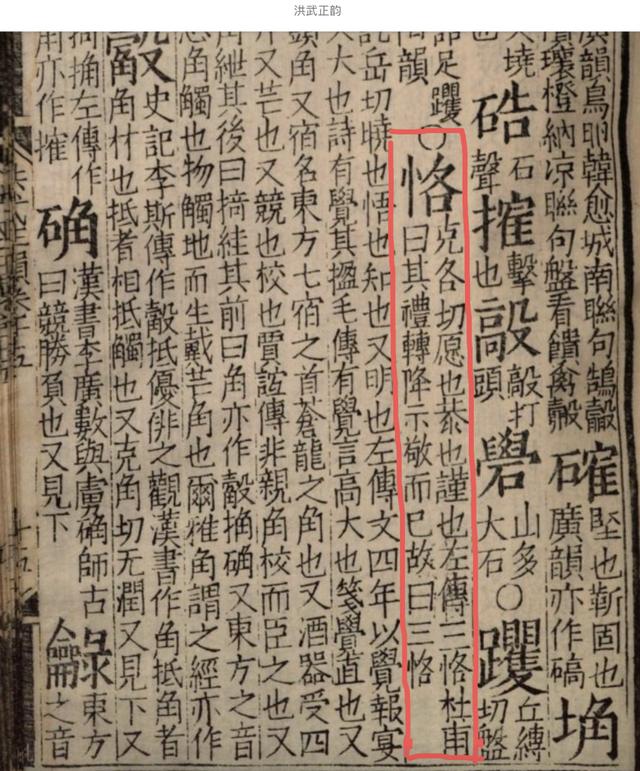 洪武正韵
廣韻鳥卵韓愈城南聯句鵠鷇
壞橙納凉聯句盤看饋禽鷇
確
堅也靳固也
廣韻亦作碻
埆
墝
也
硞
石
聲
搉
擊
也
敲打
頭
礐
山多
大石
○
躩
丘縛
切盤
足躩
韻
○
恪
克各切愿也恭也謹也左傳三恪杜甫
曰其禮轉降示敬而已故曰三恪
岳切曉也悟也知也又明也左傳文四年以覺報宴
又大也詩有覺其楹毛傳有覺言高大也箋覺直也又
頭角又宿名東方七宿之首蒼龍之角也又酒器受四
升又芒也又競也校也賈誼傳非親角校而臣之也又
角紲其後曰掎絓其前曰角亦作觳捔确又東方之音
角觸也物觸地而生戴芒角也爾雅角謂之經亦作
史記李斯傳作觳抵優俳之觀漢書作角抵角者
角材也抵者相抵觸也又克角切无潤又見下又
掎捔左傳作
角亦作搉
确
漢書李廣數與虜确師古
曰競勝負也又見下
龣
東方
之音